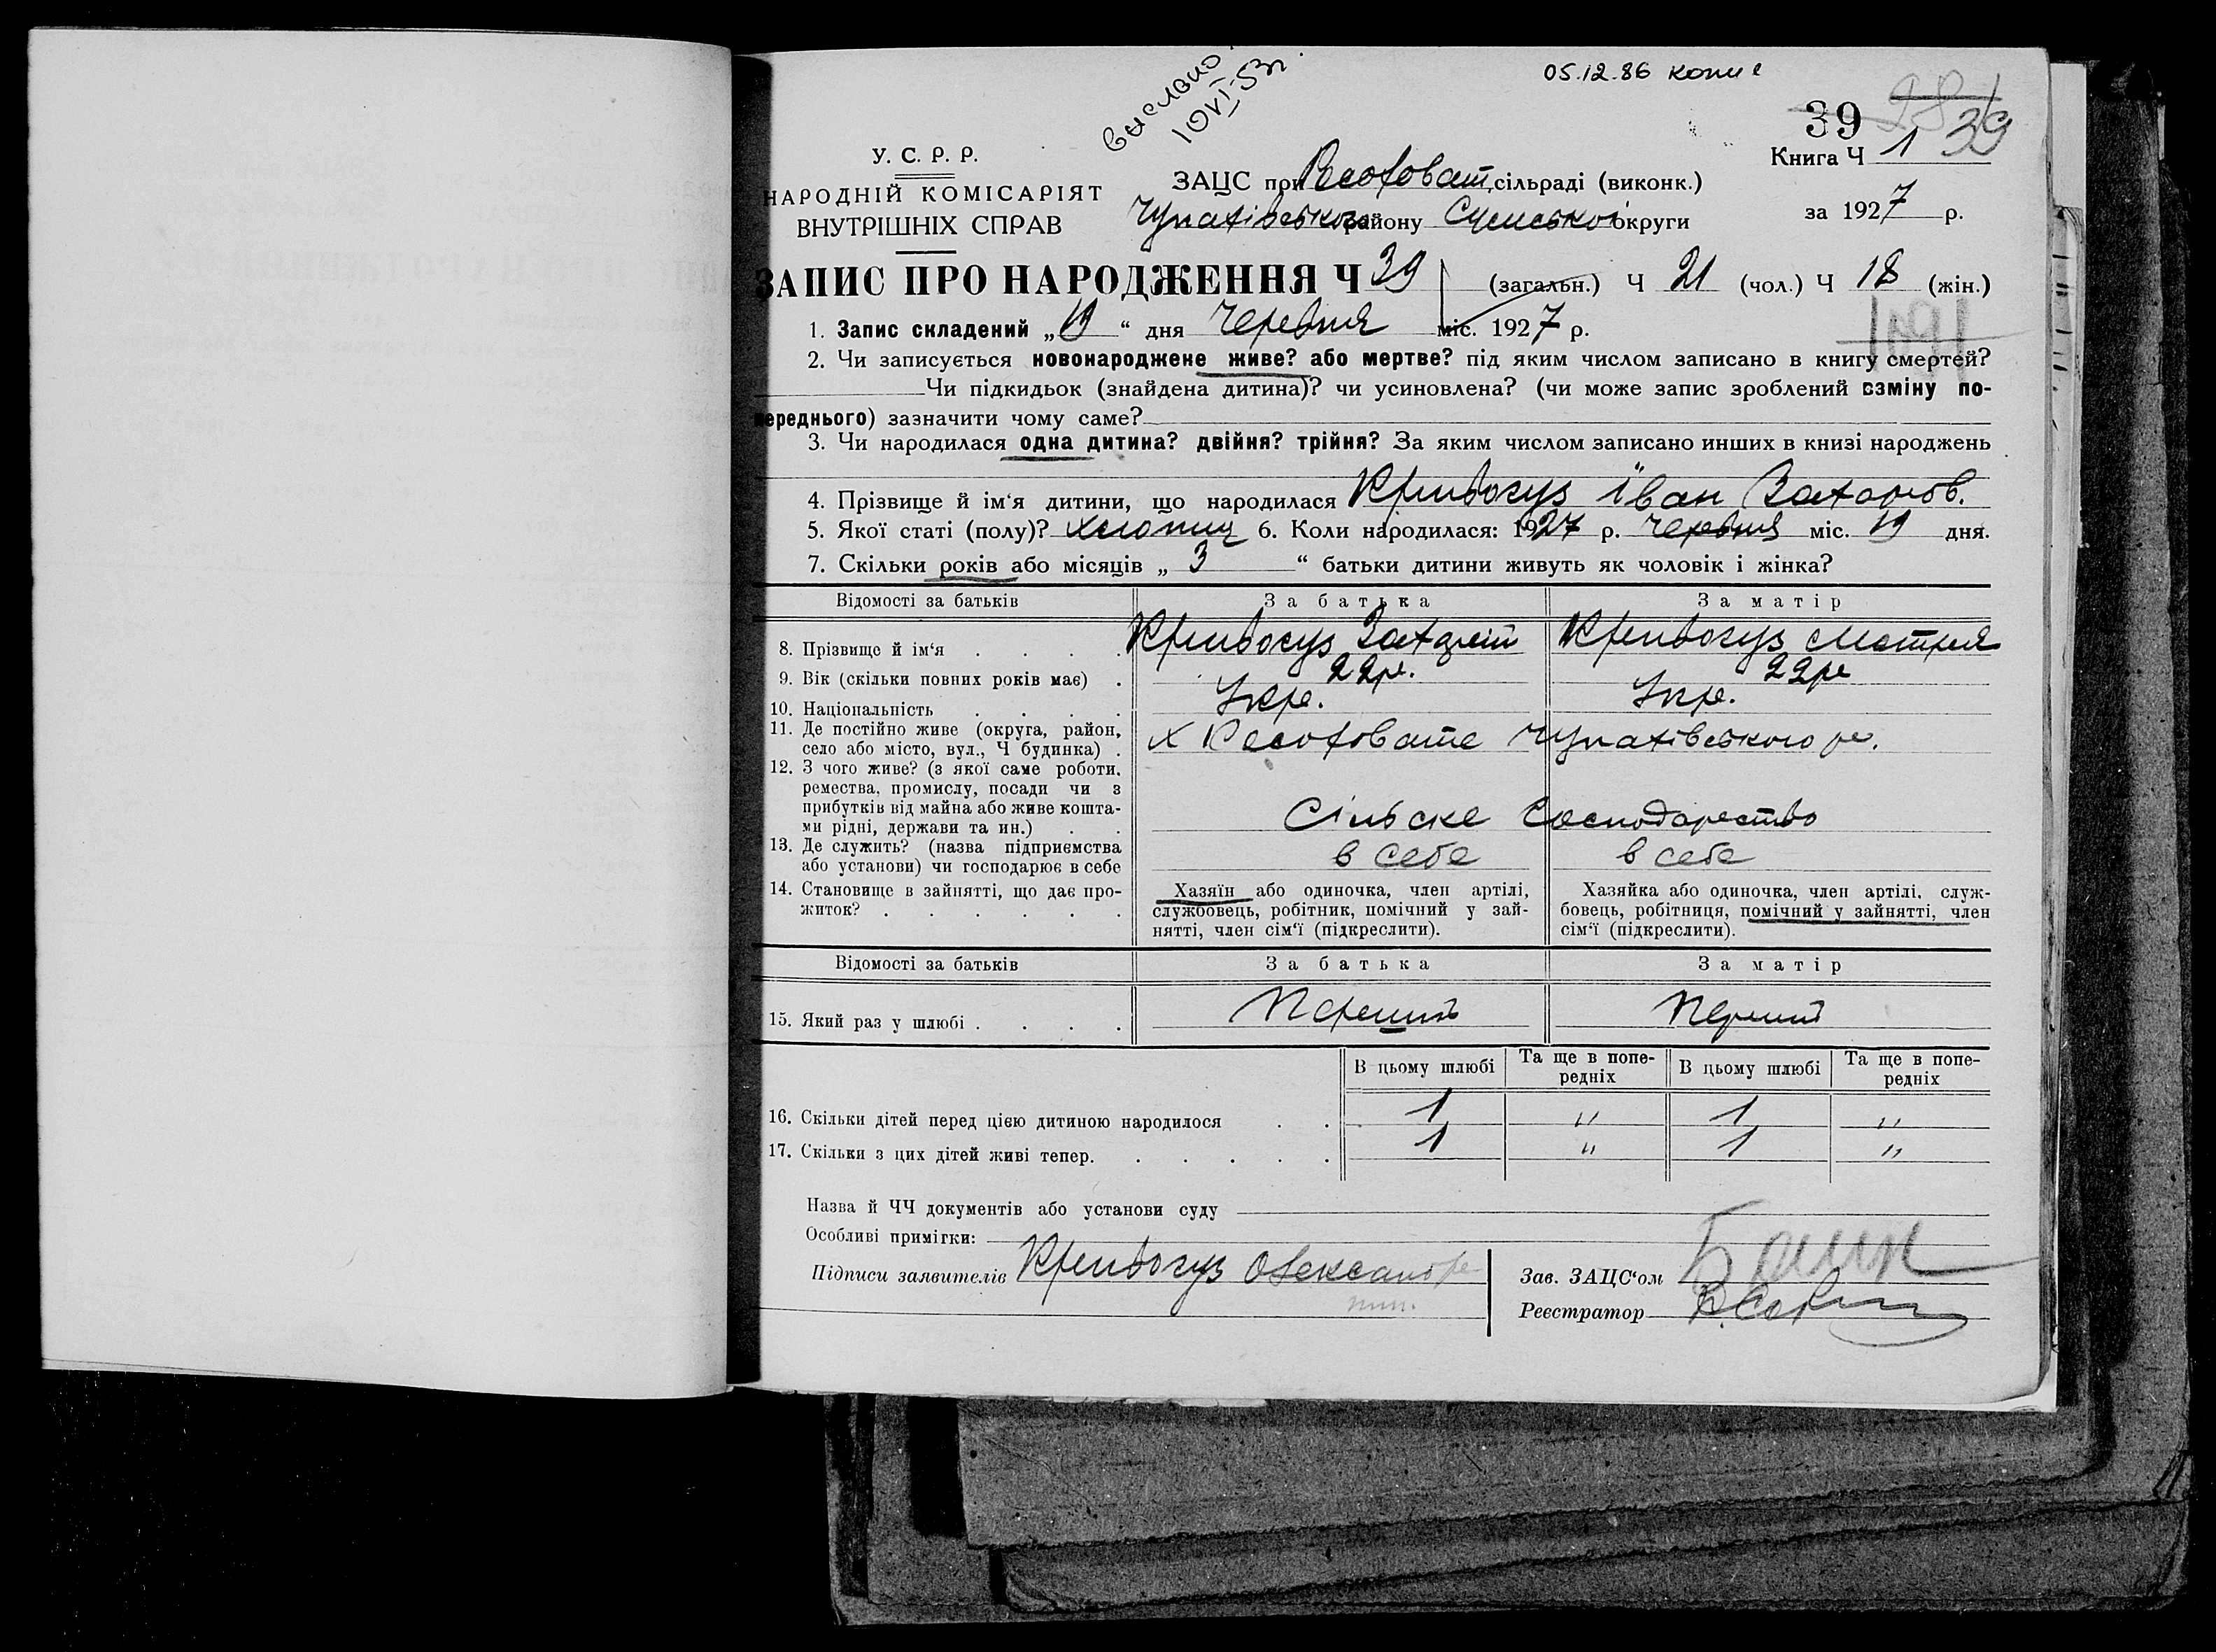 вислано
10 VI-53г.
05.12.86 копие
39
39
У. С. Р. Р.
НАРОДНІЙ КОМІСАРІЯТ
ВНУТРІШНІХ СПРАВ
ЗАЦС при сільраді (виконк.)
Чупахівського району Сумської округи
Книга Ч 1
за 1927 р.
ЗАПИС ПРО НАРОДЖЕННЯ Ч 39 (загальн.) Ч 21 (чол.) Ч 18 (жін.)
1. Запис складений „19“ дня Червня міс. 1927 р.
2. Чи записується новонароджене живе? або мертве? під яким числом записано в книгу смертей?
Чи підкидьок (знайдена дитина)? чи усиновлена? (чи може запис зроблений взміну по-
переднього) зазначити чому саме?
3. Чи народилася одна дитина? двійня? трійня? За яким числом записано инших в книзі народжень
4. Прізвище й ім‘я дитини, що народилася Кривогуз Іван Захаров.
5. Якої статі (полу)? хлопиц 6. Коли народилася: 1927 р. Червня міс. 19 дня.
7. Скільки років або місяців „ 3 “ батьки дитини живуть як чоловік і жінка?
Відомості за батьків За батька За матір
8. Прізвище й ім‘я . . . . Кривогуз Кривогуз Мотря
9. Вік (скільки повних років має) . 22р. 22р
10. Національність . . . . Укр. Укр.
11. Де постійно живе (округа, район,
село або місто, вул., Ч будинка) . х Чупахівського р.
12. З чого живе? (з якої саме роботи,
ремества, промислу, посади чи з
прибутків від майна або живе кошта-
ми рідні, держави та ин.) . . Сільске Господарство
13. Де служить? (назва підприємства
або установи) чи господарює в себе в себе в себе
14. Становище в зайнятті, що дає про-
житок? . . . . . .
Хазяїн або одиночка, член артілі,
службовець, робітник, помічний у зай-
нятті, член сім‘ї (підкреслити).
Хазяйка або одиночка, член артілі, служ-
бовець, робітниця, помічний у зайнятті, член
сім‘ї (підкреслити).
Відомості за батьків За батька За матір
15. Який раз у шлюбі . . . . Перший Перший
В цьому шлюбі Та ще в попе-
редніх В цьому шлюбі Та ще в попе-
редніх
16. Скільки дітей перед цією дитиною народилося . . 1 " 1 "
17. Скільки з цих дітей живі тепер. . . . . . 1 " 1 "
Назва й ЧЧ документів або установи суду
Особливі примітки:
Підписи заявителів Кривогуз Олександр
Зав. ЗАЦС‘ом
Реєстратор